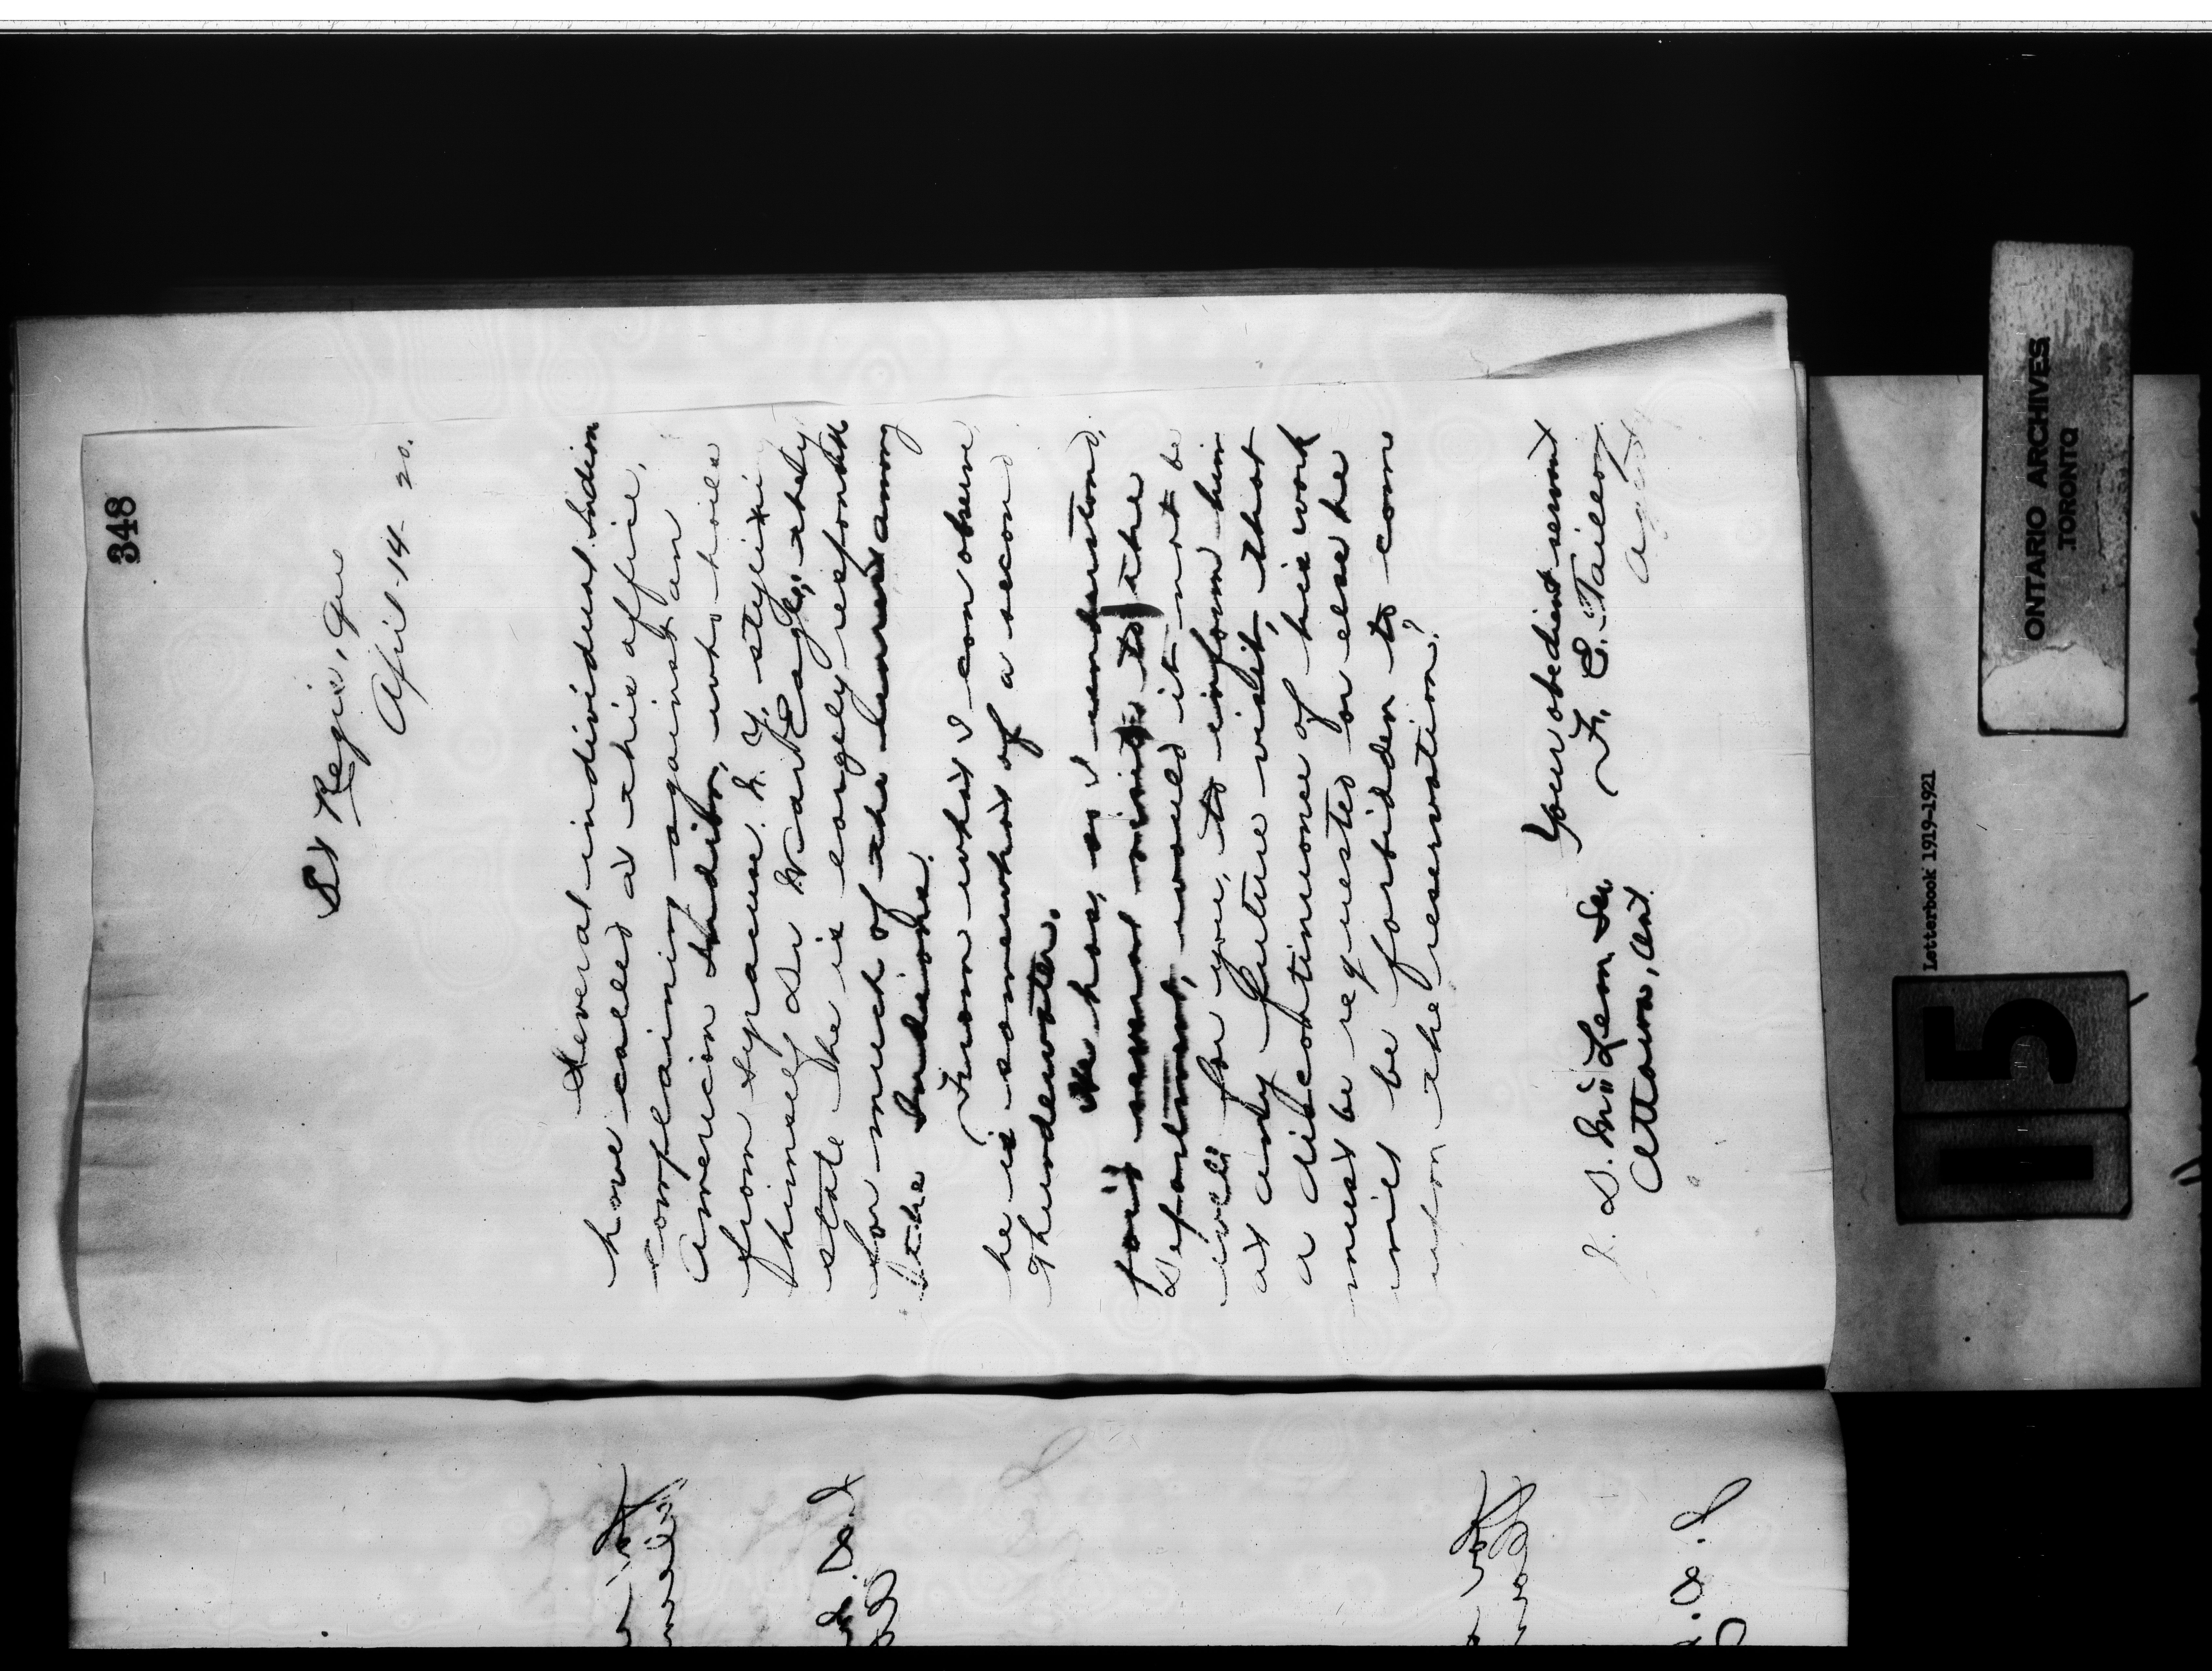 348
St Regis, Que
April 14 - 20.
Several individual Indian
have called at this office,
complaining against an
American Indian, who hails
from Syracuse N. Y. styling
himself Dr War Eagle, they
state he is largely responsible
for much of the unrest among
the Indians.
From what I can observe
he is somewhat of a second
Thunderwater.
He has, as I understand,
paid several visits to the
Department, would it not be
well for you, to inform him
at any future visit, that
a discontinuance of his work
must be requested or else he
will be forbidden to come
upon the reservation?
Your obedient servant
F. E. Taillon
Agent
Ottawa, Ont.
Letterbook 1919-1921
115
ONTARIO ARCHIVES
TORONTO